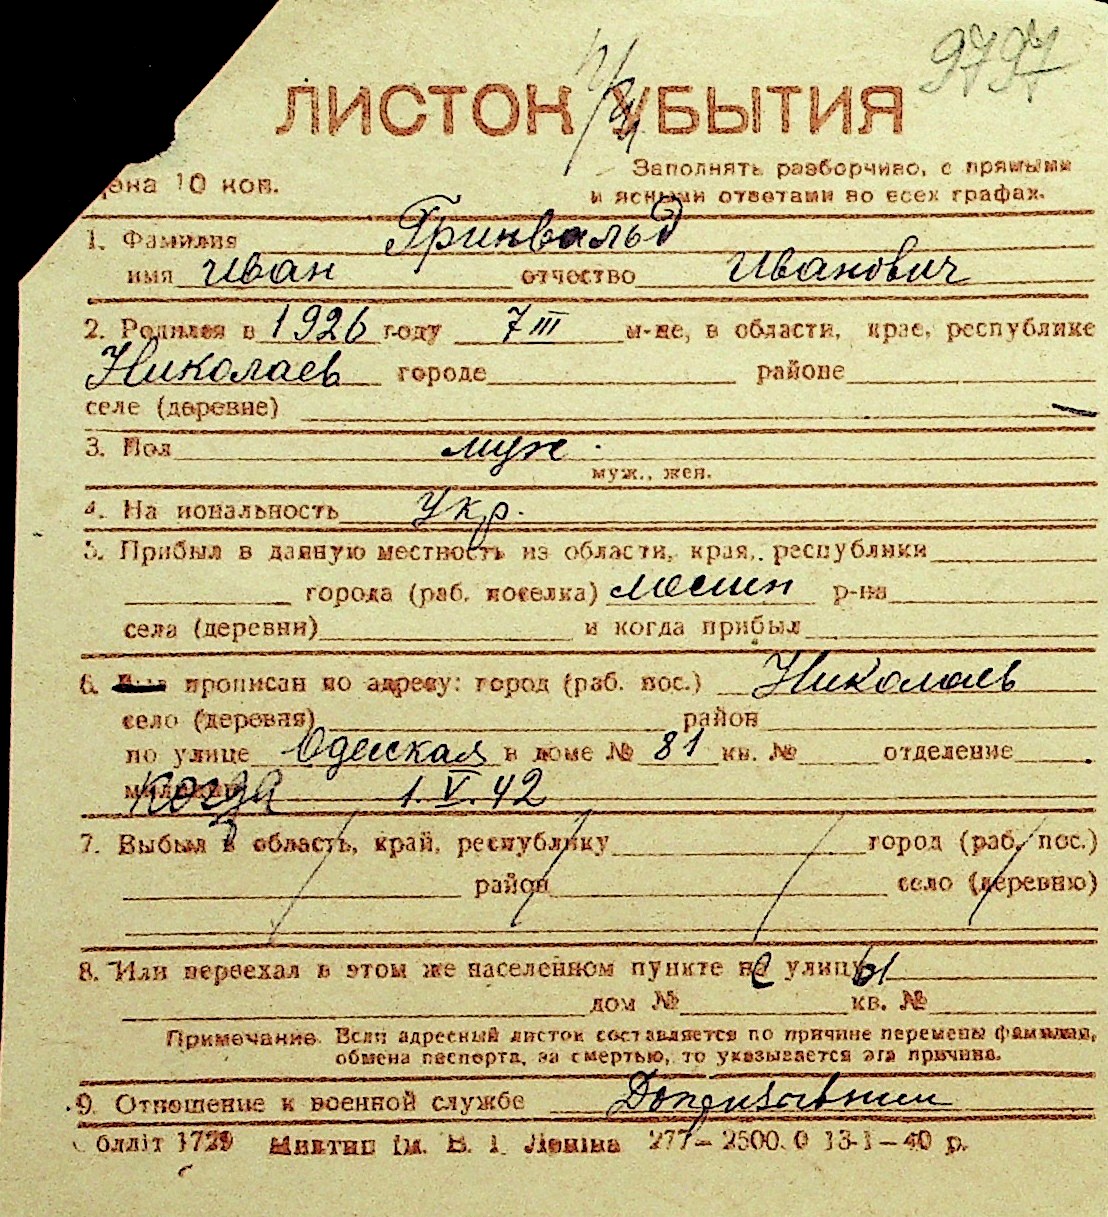 9797
ЛИСТОК УБЫТИЯ
Цена 10 коп.
Заполнять разборчиво, с прямыми
и ясными ответами во всех графах.
1. Фамилия Гринвальд
имя Иван отчество Иванович
2. Родился в 1926 году 7 III м-це, в области, крае, республике
Николаев городе районе
селе (деревне) —
3. Пол муж.
муж., жен.
4. На иональность Укр.
5. Прибыл в данную местность из области, края, республики
города (раб. поселка) р-на
села (деревни) и когда прибыл
6. прописан по адресу: город (раб. пос.) Николаев
село (деревня) район
по улице Одесская в доме № 81 кв. № отделение
когда 1.V.42
7. Выбыл в область, край, республику город (раб. пос.)
район село (деревню)
8. Или переехал в этом же населенном пункте с улицы
дом № кв. №
Примечание. Если адресный листок составляется по причине перемены фамилии,
обмена паспорта, за смертью, то указывается эта причина.
9. Отношение к военной службе Допризывник
облліт 1729 Миктип ім. В. І. Леніна 277–2500.0 13-1–40 р.